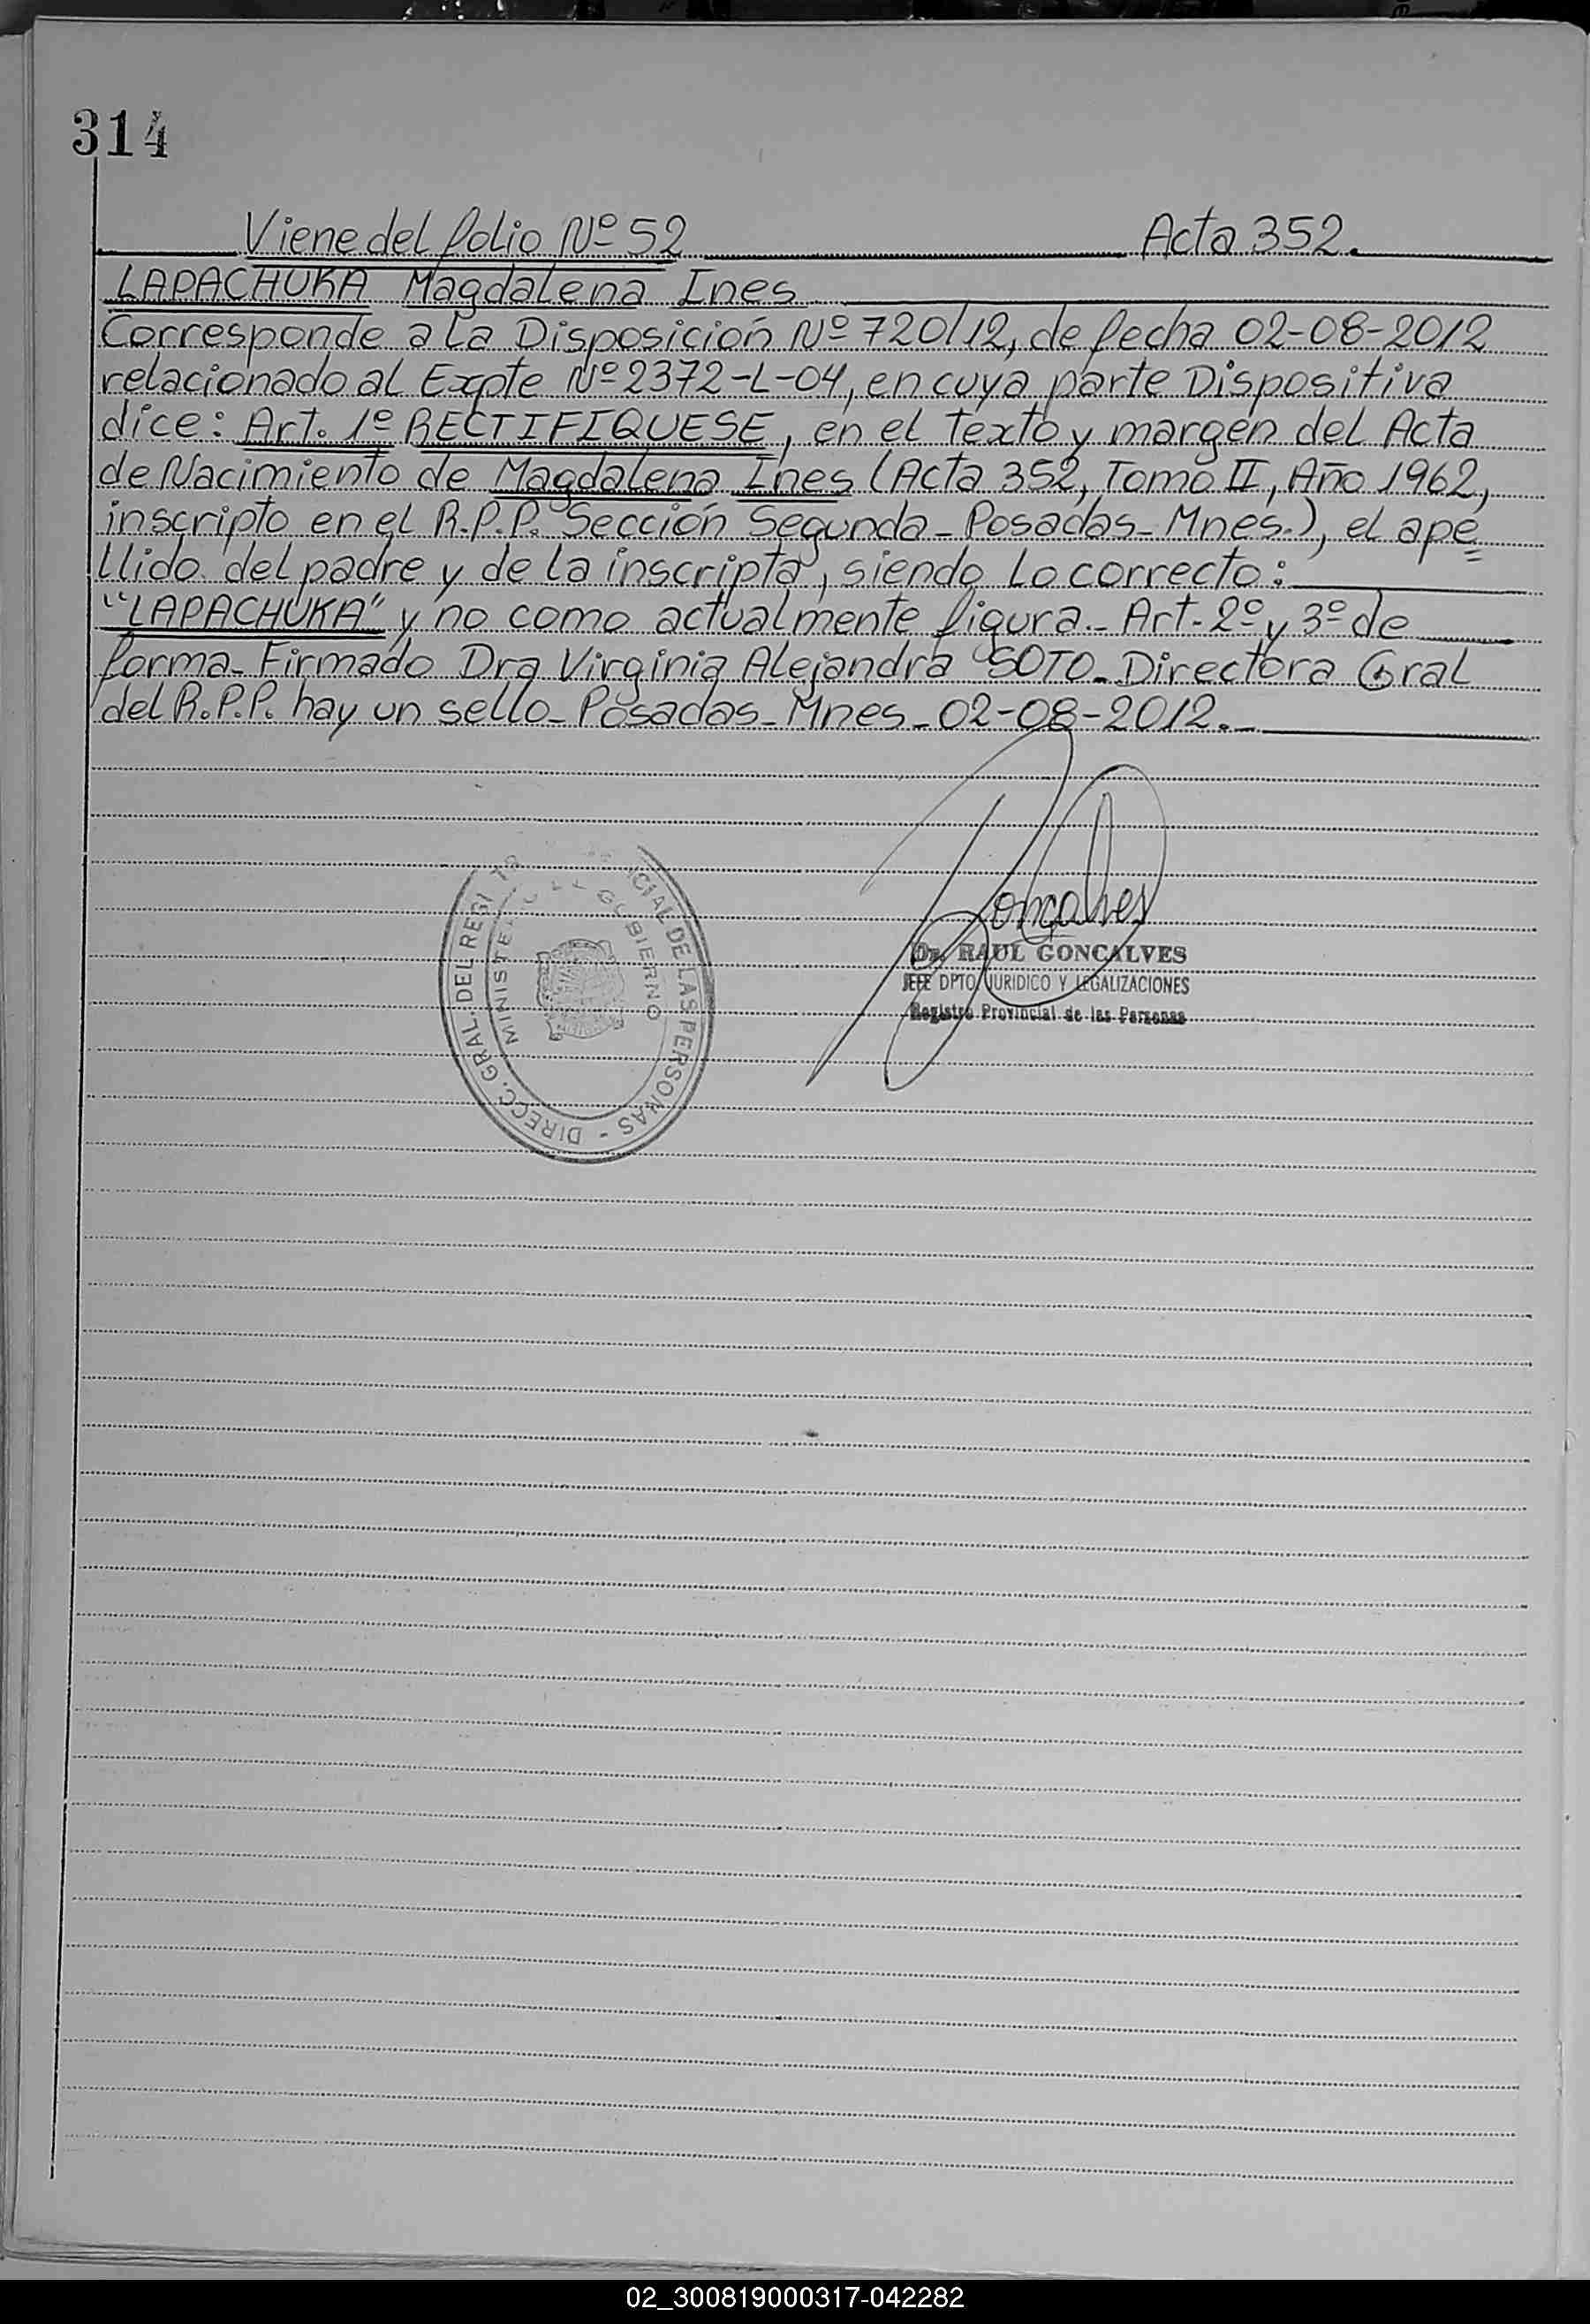 314
Viene del folio Nº 52 Acta 352.
LAPACHUKA Magdalena Ines
Corresponde a la Disposición Nº 720/12, de fecha 02-08-2012
relacionado al Expte Nº 2372-L-04, en cuya parte Dispositiva
dice: Art. 1º RECTIFIQUESE, en el texto y margen del Acta
de Nacimiento de Magdalena Ines (Acta 352, Tomo II, Año 1962,
inscripto en el R.P.P. Sección Segunda - Posadas - Mnes.), el ape=
llido del padre y de la inscripta, siendo lo correcto:
"LAPACHUKA" y no como actualmente figura.- Art. 2º y 3º de
forma - Firmado Dra Virginia Alejandra SOTO - Directora Gral
del R.P.P. hay un sello - Posadas - Mnes - 02-08-2012.-
Goncalves
Dr. RAUL GONCALVES
JEFE DPTO JURIDICO Y LEGALIZACIONES
Registro Provincial de las Personas
DIRECC. GRAL. DEL REGI CIAL DE LAS PERSONAS -
MINISTE GOBIERNO
02_300819000317-042282